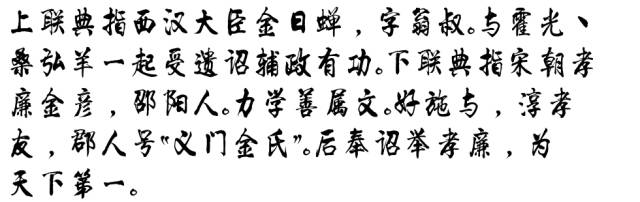 上联典指西汉大臣金日蝉，字翁叔。与霍光、
桑弘羊一起受遗诏辅政有功。下联典指宋朝孝
廉金彦，邵阳人。力学善属文。好施与，淳孝
友，郡人号“义门金氏”。后奉诏举孝廉，为
天下第一。